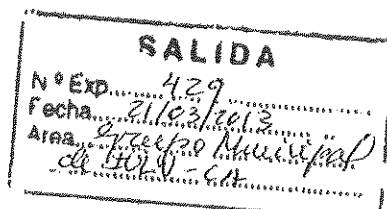 SALIDA
Nº Exp. 429
Fecha 21/03/2013
Area Grupo Municipal
de IULV-CA